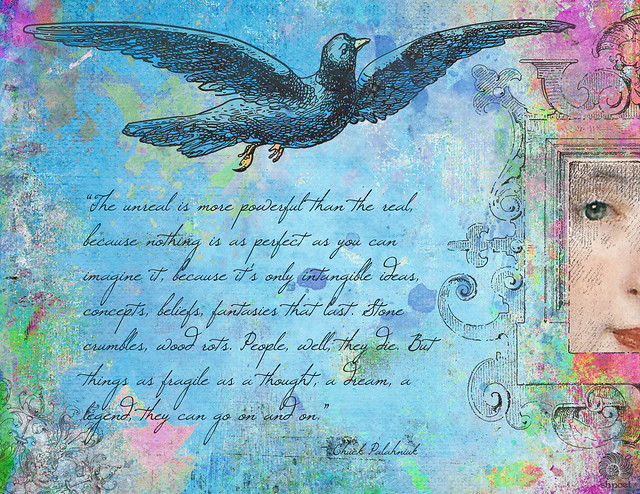 “The unreal is more powerful than the real,
because nothing is as perfect as you can
imagine it, because it's only intangible ideas,
concepts, beliefs, fantasies that last. Stone
crumbles, wood rots. People, well, they die. But
things as fragile as a thought, a dream, a
legend, they can go on and on.”
Chuck Palahniuk